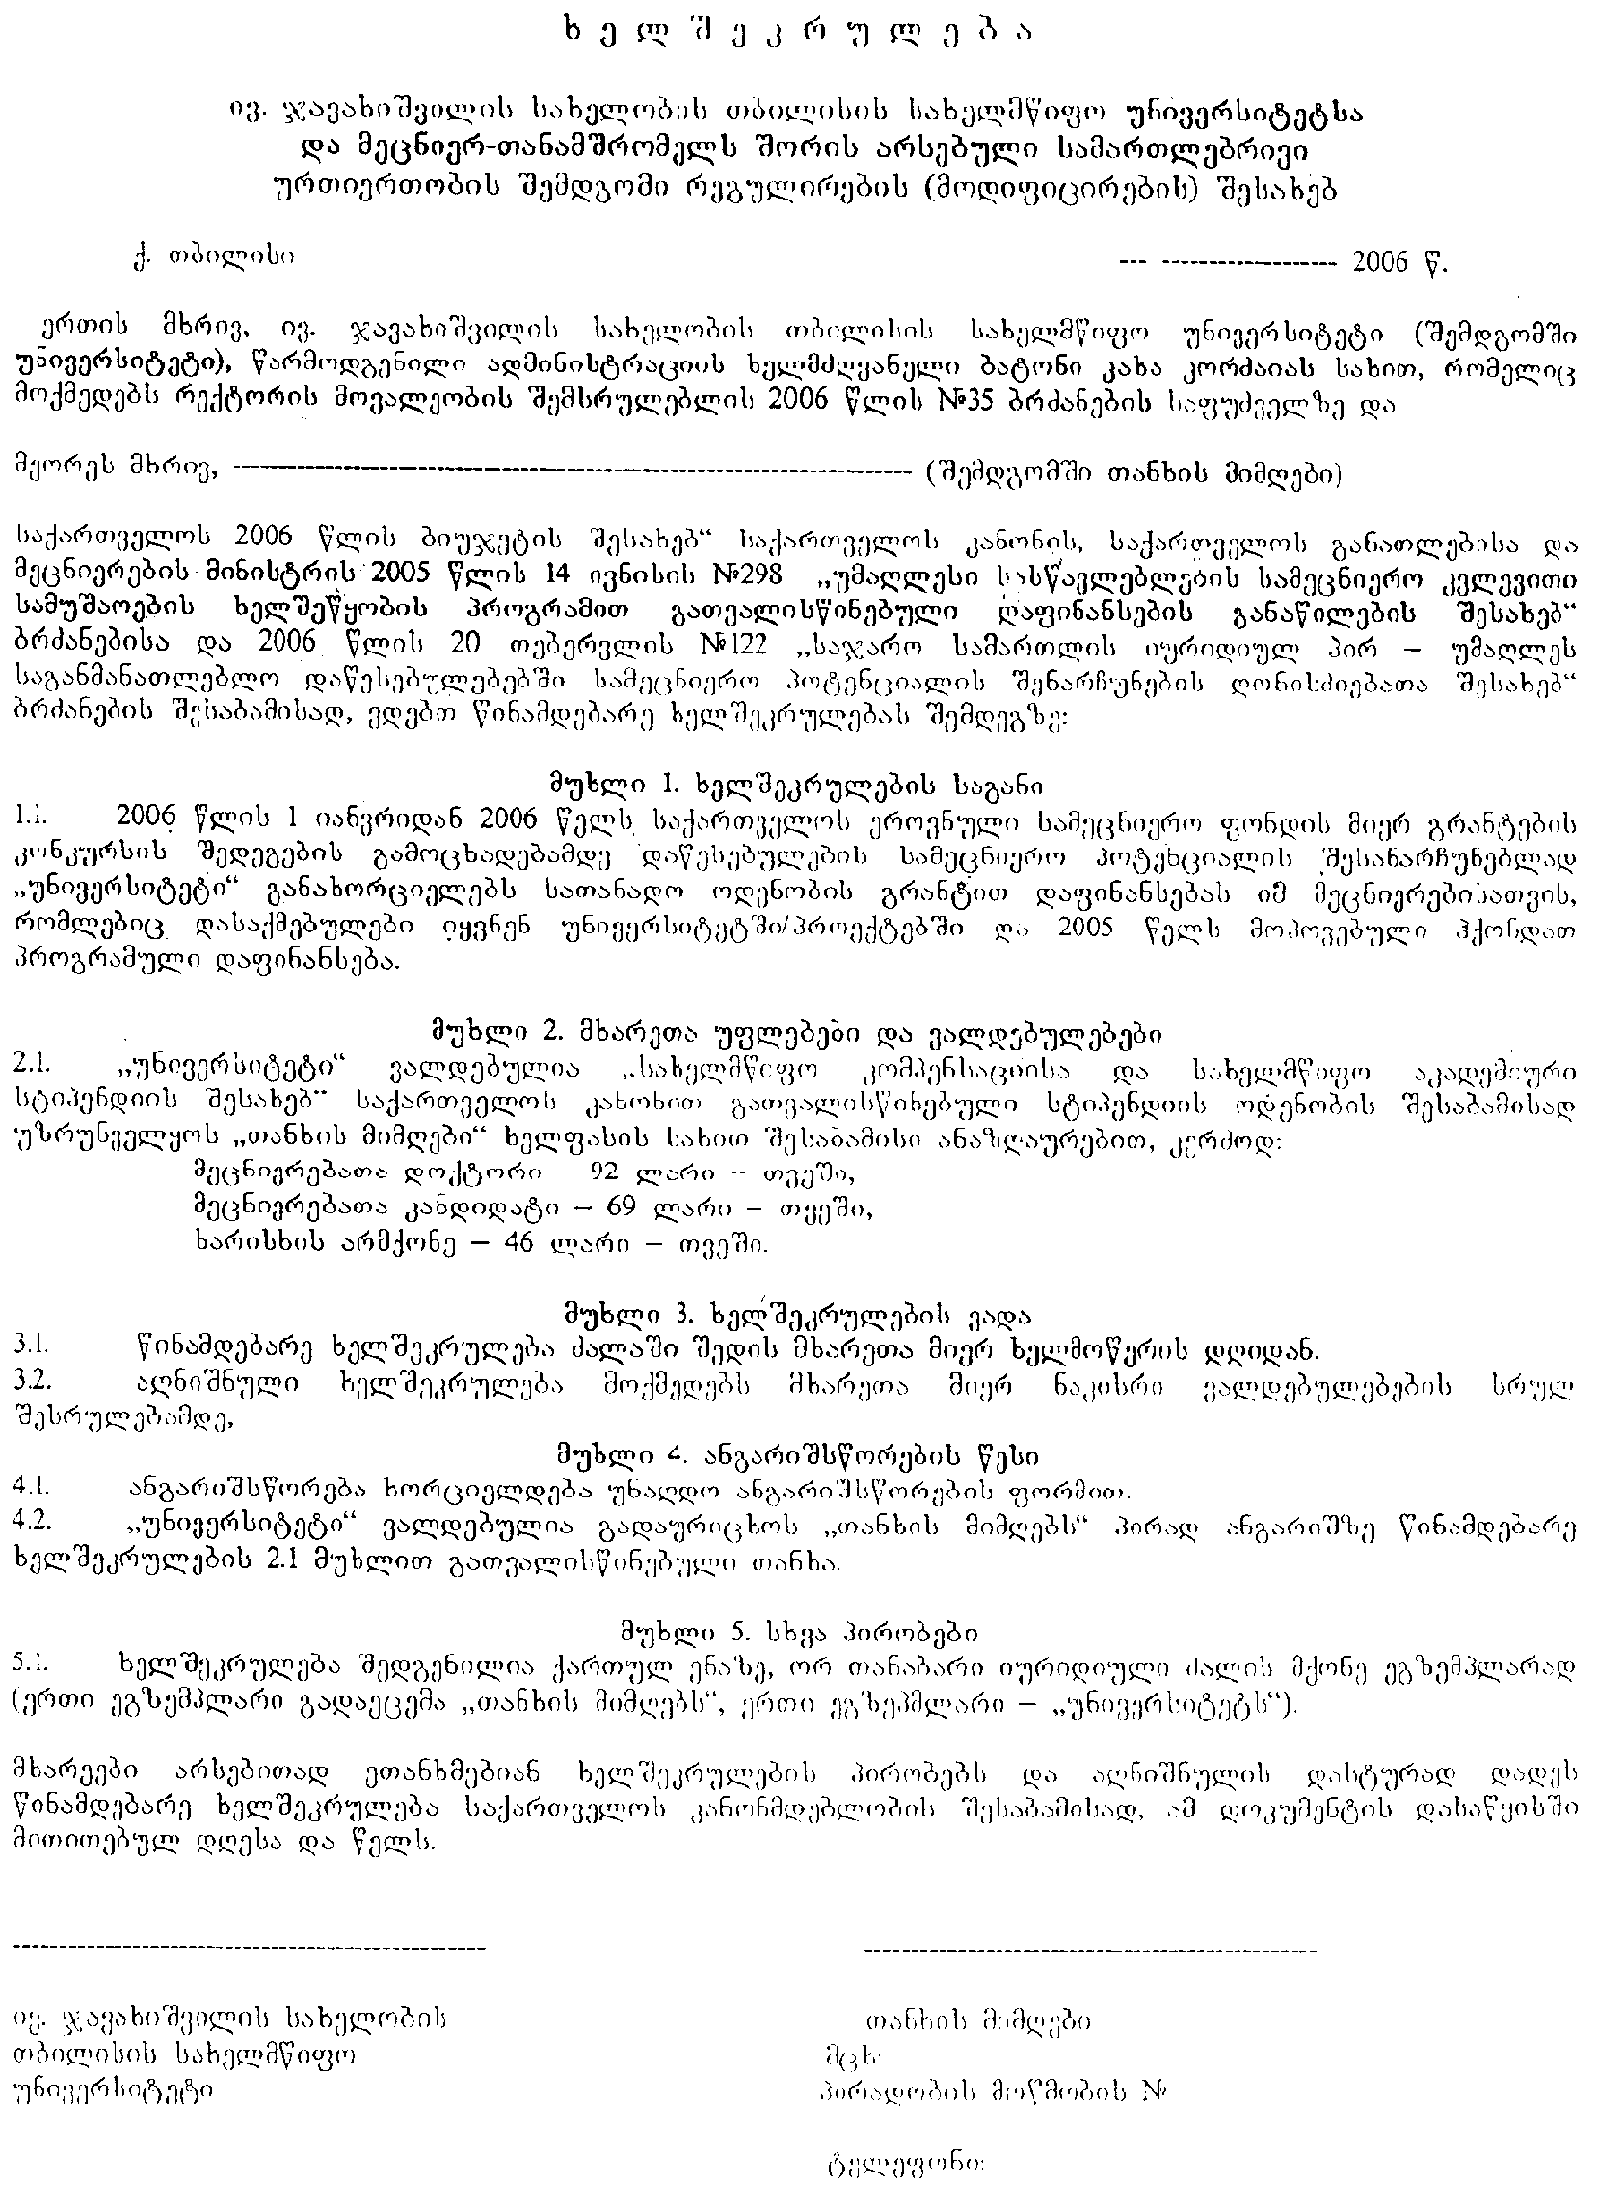 ხ ე ლ შ ე კ რ უ ლ ე ბ ა
ივ. ჯავახიშვილის სახელობის თბილისის სახელმწიფო უნივერსიტეტსა
და მეცნიერ-თანამშრომელს შორის არსებული სამართლებრივი
ურთიერთობის შემდგომი რეგულირების (მოდიფიცირების) შესახებ
ქ. თბილისი --- ------------------- 2006 წ.
ერთის მხრივ, ივ. ჯავახიშვილის სახელობის თბილისის სახელმწიფო უნივერსიტეტი (შემდგომში
უნივერსიტეტი), წარმოდგენილი ადმინისტრაციის ხელმძღვანელი ბატონი კახა კორძაიას სახით, რომელიც
მოქმედებს რექტორის მოვალეობის შემსრულებლის 2006 წლის №35 ბრძანების საფუძველზე და
მეორეს მხრივ, ---------------------------------------------------------------------- (შემდგომში თანხის მიმღები)
საქართველოს 2006 წლის ბიუჯეტის შესახებ“ საქართველოს კანონის, საქართველოს განათლებისა და
მეცნიერების მინისტრის 2005 წლის 14 ივნისის №298 „უმაღლესი სასწავლებლების სამეცნიერო კვლევითი
სამუშაოების ხელშეწყობის პროგრამით გათვალისწინებული დაფინანსების განაწილების შესახებ“
ბრძანებისა და 2006 წლის 20 თებერვლის №122 „საჯარო სამართლის იურიდიულ პირ – უმაღლეს
საგანმანათლებლო დაწესებულებებში სამეცნიერო პოტენციალის შენარჩუნების ღონისძიებათა შესახებ“
ბრძანების შესაბამისად, ვდებთ წინამდებარე ხელშეკრულებას შემდეგზე:
მუხლი 1. ხელშეკრულების საგანი
1.1. 2006 წლის 1 იანვრიდან 2006 წელს საქართველოს ეროვნული სამეცნიერო ფონდის მიერ გრანტების
კონკურსის შედეგების გამოცხადებამდე დაწესებულების სამეცნიერო პოტენციალის შესანარჩუნებლად
„უნივერსიტეტი“ განახორციელებს სათანადო ოდენობის გრანტით დაფინანსებას იმ მეცნიერებისათვის,
რომლებიც დასაქმებულები იყვნენ უნივერსიტეტში/პროექტებში და 2005 წელს მოპოვებული ჰქონდათ
პროგრამული დაფინანსება.
მუხლი 2. მხარეთა უფლებები და ვალდებულებები
2.1. „უნივერსიტეტი“ ვალდებულია „სახელმწიფო კომპენსაციისა და სახელმწიფო აკადემიური
სტიპენდიის შესახებ“ საქართველოს კანონით გათვალისწინებული სტიპენდიის ოდენობის შესაბამისად
უზრუნველყოს „თანხის მიმღები“ ხელფასის სახით შესაბამისი ანაზღაურებით, კერძოდ:
მეცნიერებათა დოქტორი 92 ლარი – თვეში,
მეცნიერებათა კანდიდატი – 69 ლარი – თვეში,
ხარისხის არმქონე – 46 ლარი – თვეში.
მუხლი 3. ხელშეკრულების ვადა
3.1. წინამდებარე ხელშეკრულება ძალაში შედის მხარეთა მიერ ხელმოწერის დღიდან.
3.2. აღნიშნული ხელშეკრულება მოქმედებს მხარეთა მიერ ნაკისრი ვალდებულებების სრულ
შესრულებამდე,
მუხლი 4. ანგარიშსწორების წესი
4.1. ანგარიშსწორება ხორციელდება უნაღდო ანგარიშსწორების ფორმით.
4.2. „უნივერსიტეტი“ ვალდებულია გადაურიცხოს „თანხის მიმღებს“ პირად ანგარიშზე წინამდებარე
ხელშეკრულების 2.1 მუხლით გათვალისწინებული თანხა.
მუხლი 5. სხვა პირობები
5.1. ხელშეკრულება შედგენილია ქართულ ენაზე, ორ თანაბარი იურიდიული ძალის მქონე ეგზემპლარად
(ერთი ეგზემპლარი გადაეცემა „თანხის მიმღებს“, ერთი ეგზეპმლარი – „უნივერსიტეტს“).
მხარეები არსებითად ეთანხმებიან ხელშეკრულების პირობებს და აღნიშნულის დასტურად დადეს
წინამდებარე ხელშეკრულება საქართველოს კანონმდებლობის შესაბამისად, ამ დოკუმენტის დასაწყისში
მითითებულ დღესა და წელს.
ივ. ჯავახიშვილის სახელობის თანხის მიმღები
თბილისის სახელმწიფო მცხ
უნივერსიტეტი პირადობის მოწმობის №
ტელეფონი: